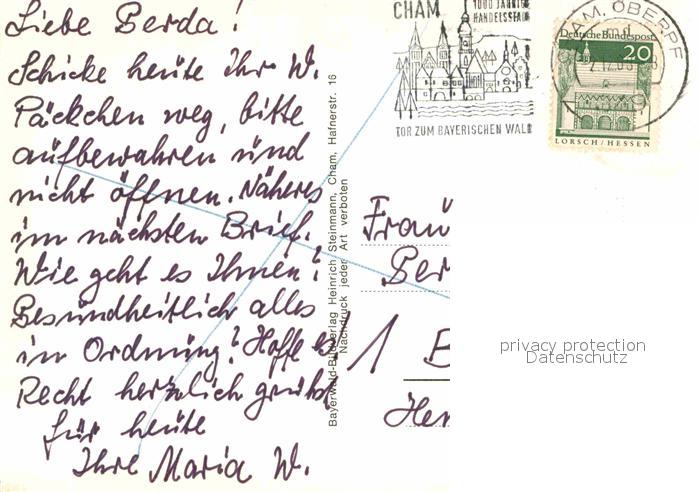 Liebe Berda!
Schicke heute Ihr W.
Päckchen weg, bitte
aufbewahren und
nicht öffnen. Näheres
im nächsten Brief.
Wie geht es Ihnen?
Gesundheitlich alles
in Ordnung? Hoffe es!
Recht herzlich grüßt
für heute
Ihre Maria W.
Bayerwald-Bildverlag Heinrich Steinmann, Cham, Hafnerstr. 16
Nachdruck jeder Art verboten
CHAM
1000 JÄHRIGE
HANDELSSTADT
TOR ZUM BAYERISCHEN WALD
CHAM, OBERPF
Deutsche Bundespost
20
LORSCH/HESSEN
Frau
Ber
1 B
Her
privacy protection
Datenschutz